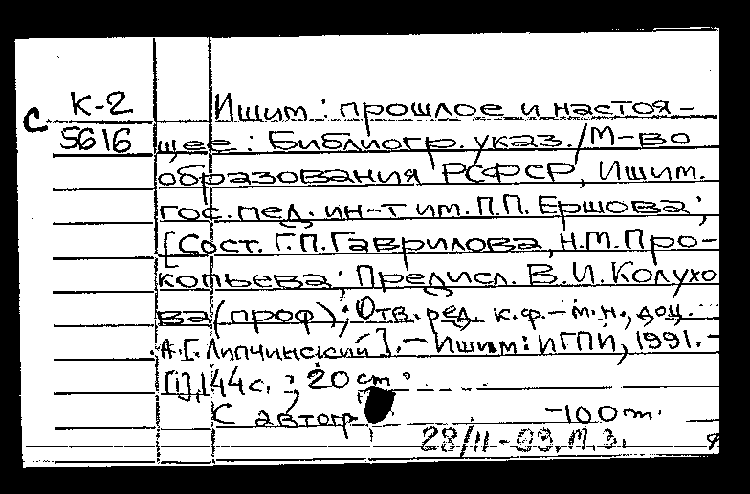 К-2 Ишим: прошлое и настоя-
С 5616 щее: Библиогр. указ./М-во
образования РСФСР, Ишим.
гос. пед. ин-т им. П.П. Ершова;
[Сост. Г.П. Гаврилова, Н.М. Про-
копьева; Предисл. В.И. Колухо
ва (проф); Отв. ред. к.ф.-м.н., доц.
А.Г. Липчинский]. - Ишим: ИГПИ, 1991. -
[1], 144 с.; 20 см.
С автогр -100 т.
28/11-93. М.З.